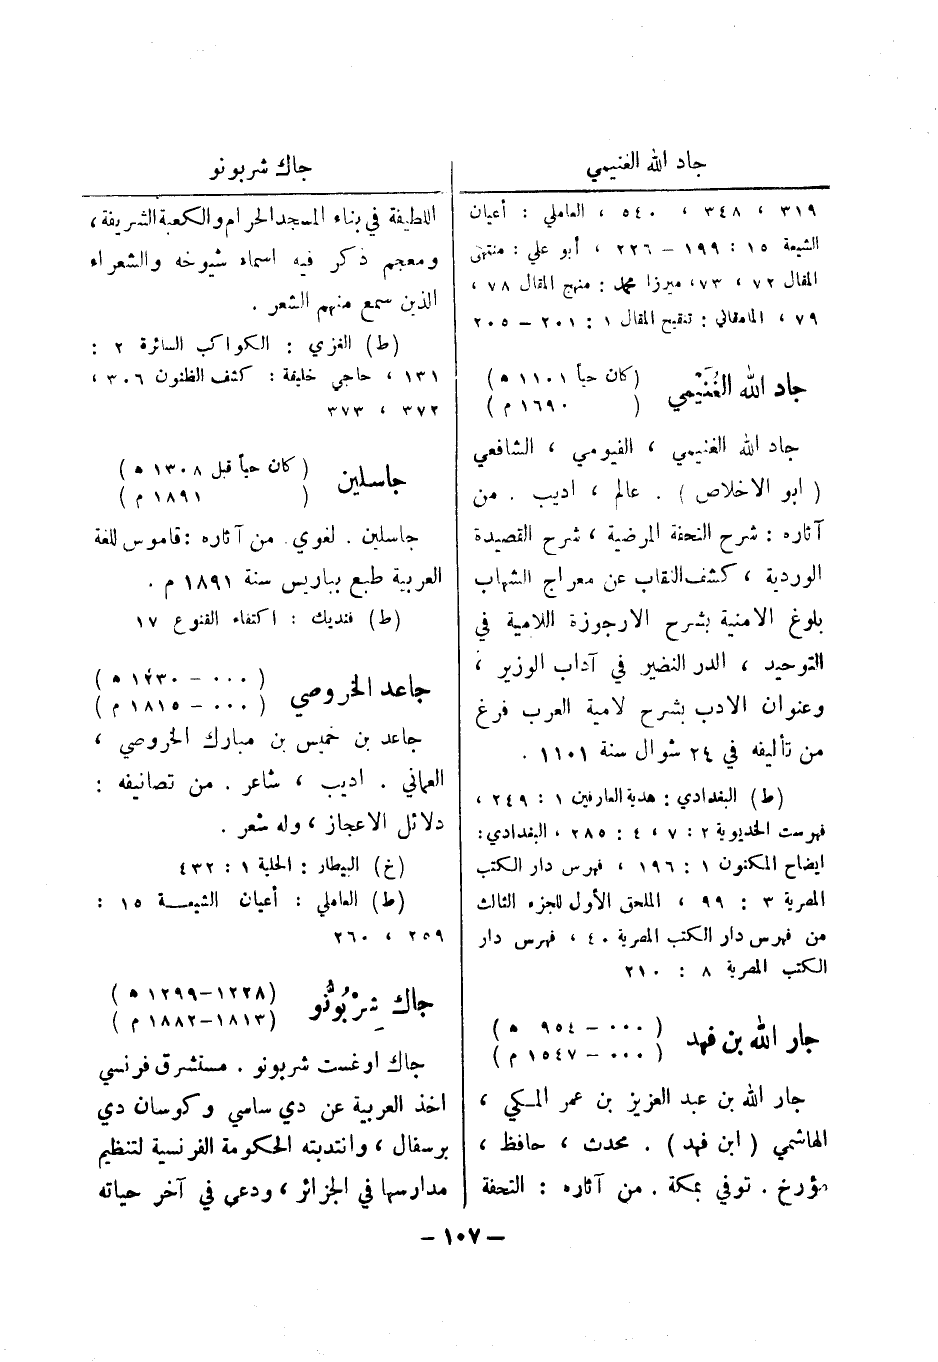 جاد الله الغنيمي
٣١٩ ، ٣٤٨ ، ٥٤٠ ، العاملي : أعيان
الشيعة ١٥ : ١٩٩ – ٢٢٦ ، أبو علي : منتهى
المقال ٧٢ ، ٧٣ ، ميرزا محمد : منهج المقال ٧٨ ،
٧٩ ، المامقاني : تنقيح المقال ١ : ٢٠١ – ٢٠٥
جاد الله الغُنَيْمي (كان حياً ١١٠١ ه)
( ١٦٩٠ م )
جاد الله الغنيمي ، الفيومي ، الشافعي
( ابو الاخلاص ) . عالم ، اديب . من
آثاره : شرح التحفة المرضية ، شرح القصيدة
الوردية ، كشف النقاب عن معراج الشهاب
بلوغ الامنية بشرح الارجوزة اللامية في
التوحيد ، الدر النضير في آداب الوزير ،
وعنوان الادب بشرح لامية العرب فرغ
من تأليفه في ٢٤ شوال سنة ١١٠١ .
(ط) البغدادي : هدية العارفين ١ : ٢٤٩ ،
فهرست الخديوية ٢ : ٧ ، ٤ : ٢٨٥ ، البغدادي :
ايضاح المكنون ١ : ١٩٦ ، فهرس دار الكتب
المصرية ٣ : ٩٩ ، الملحق الأول للجزء الثالث
من فهرس دار الكتب المصرية ٤٠ ، فهرس دار
الكتب المصرية ٨ : ٢١٠
جار الله بن فهد ( ٠٠٠ – ٩٥٤ ه )
( ٠٠٠ – ١٥٤٧ م )
جار الله بن عبد العزيز بن عمر المكي ،
الهاشمي ( ابن فهد ) . محدث ، حافظ ،
مؤرخ . توفي بمكة . من آثاره : التحفة
جاك شربونو
اللطيفة في بناء المسجد الحرام والكعبة الشريفة ،
ومعجم ذكر فيه اسماء شيوخه والشعراء
الذين سمع منهم الشعر .
(ط) الغزي : الكواكب السائرة ٢ :
١٣١ ، حاجي خليفة : كشف الظنون ٣٠٦ ،
٣٧٢ ، ٣٧٣
جاسلين ( كان حياً قبل ١٣٠٨ ه )
( ١٨٩١ م )
جاسلين . لغوي . من آثاره : قاموس للغة
العربية طبع بباريس سنة ١٨٩١ م .
(ط) فنديك : اكتفاء القنوع ١٧
جاعد الخروصي ( ٠٠٠ – ١٢٣٠ ه )
( ٠٠٠ – ١٨١٥ م )
جاعد بن خميس بن مبارك الخروصي ،
العماني . اديب ، شاعر . من تصانيفه :
دلائل الاعجاز ، وله شعر .
(خ) البيطار : الحلية ١ : ٤٣٢
(ط) العاملي : أعيان الشيعة ١٥ :
٢٥٩ ، ٢٦٠
جاك شِرْبُونُو (١٢٢٨–١٢٩٩ ه )
(١٨١٣–١٨٨٢ م )
جاك اوغست شربونو . مستشرق فرنسي
اخذ العربية عن دي ساسي وكوسان دي
برسفال ، وانتدبته الحكومة الفرنسية لتنظيم
مدارسها في الجزائر ، ودعي في آخر حياته
– ١٠٧ –